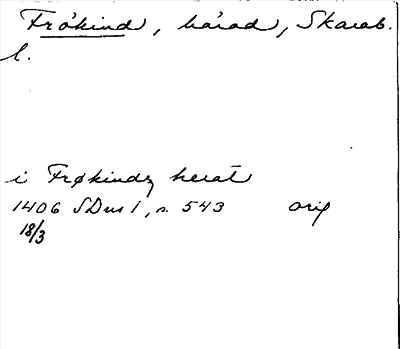 Frökind, härad, Skarab.
l.
i Frøkindz herat
1406 SDns 1, s. 543 orig
18/3